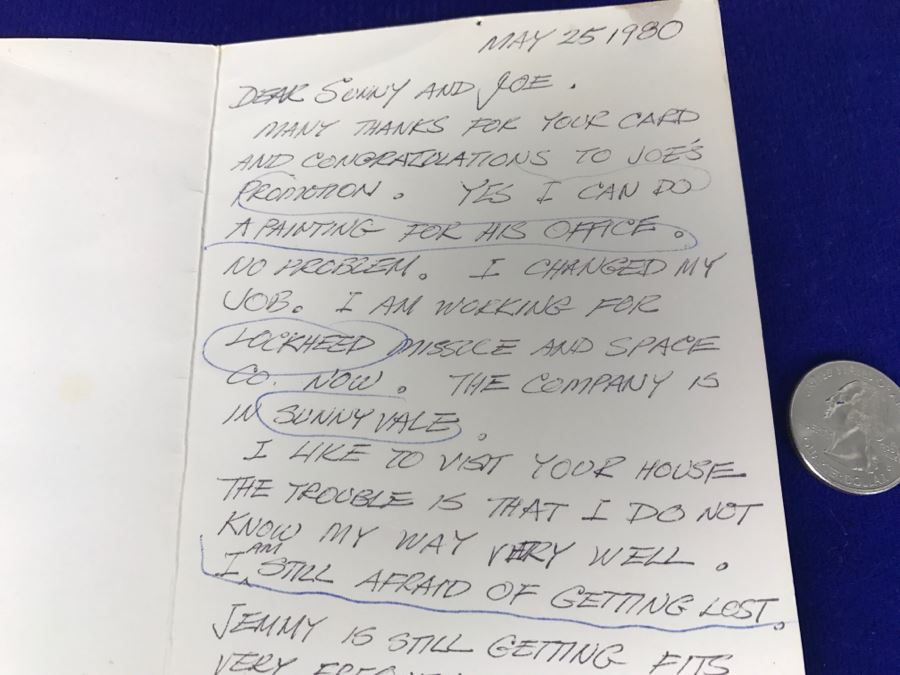 MAY 25 1980
DEAR SUNNY AND JOE.
MANY THANKS FOR YOUR CARD
AND CONGRATULATIONS TO JOE'S
PROMOTION. YES I CAN DO
A PAINTING FOR HIS OFFICE.
NO PROBLEM. I CHANGED MY
JOB. I AM WORKING FOR
LOCKHEED MISSILE AND SPACE
CO. NOW. THE COMPANY IS
IN SUNNYVALE.
I LIKE TO VISIT YOUR HOUSE
THE TROUBLE IS THAT I DO NOT
KNOW MY WAY VERY WELL.
I AM STILL AFRAID OF GETTING LOST.
JEMMY IS STILL GETTING FITS
VERY